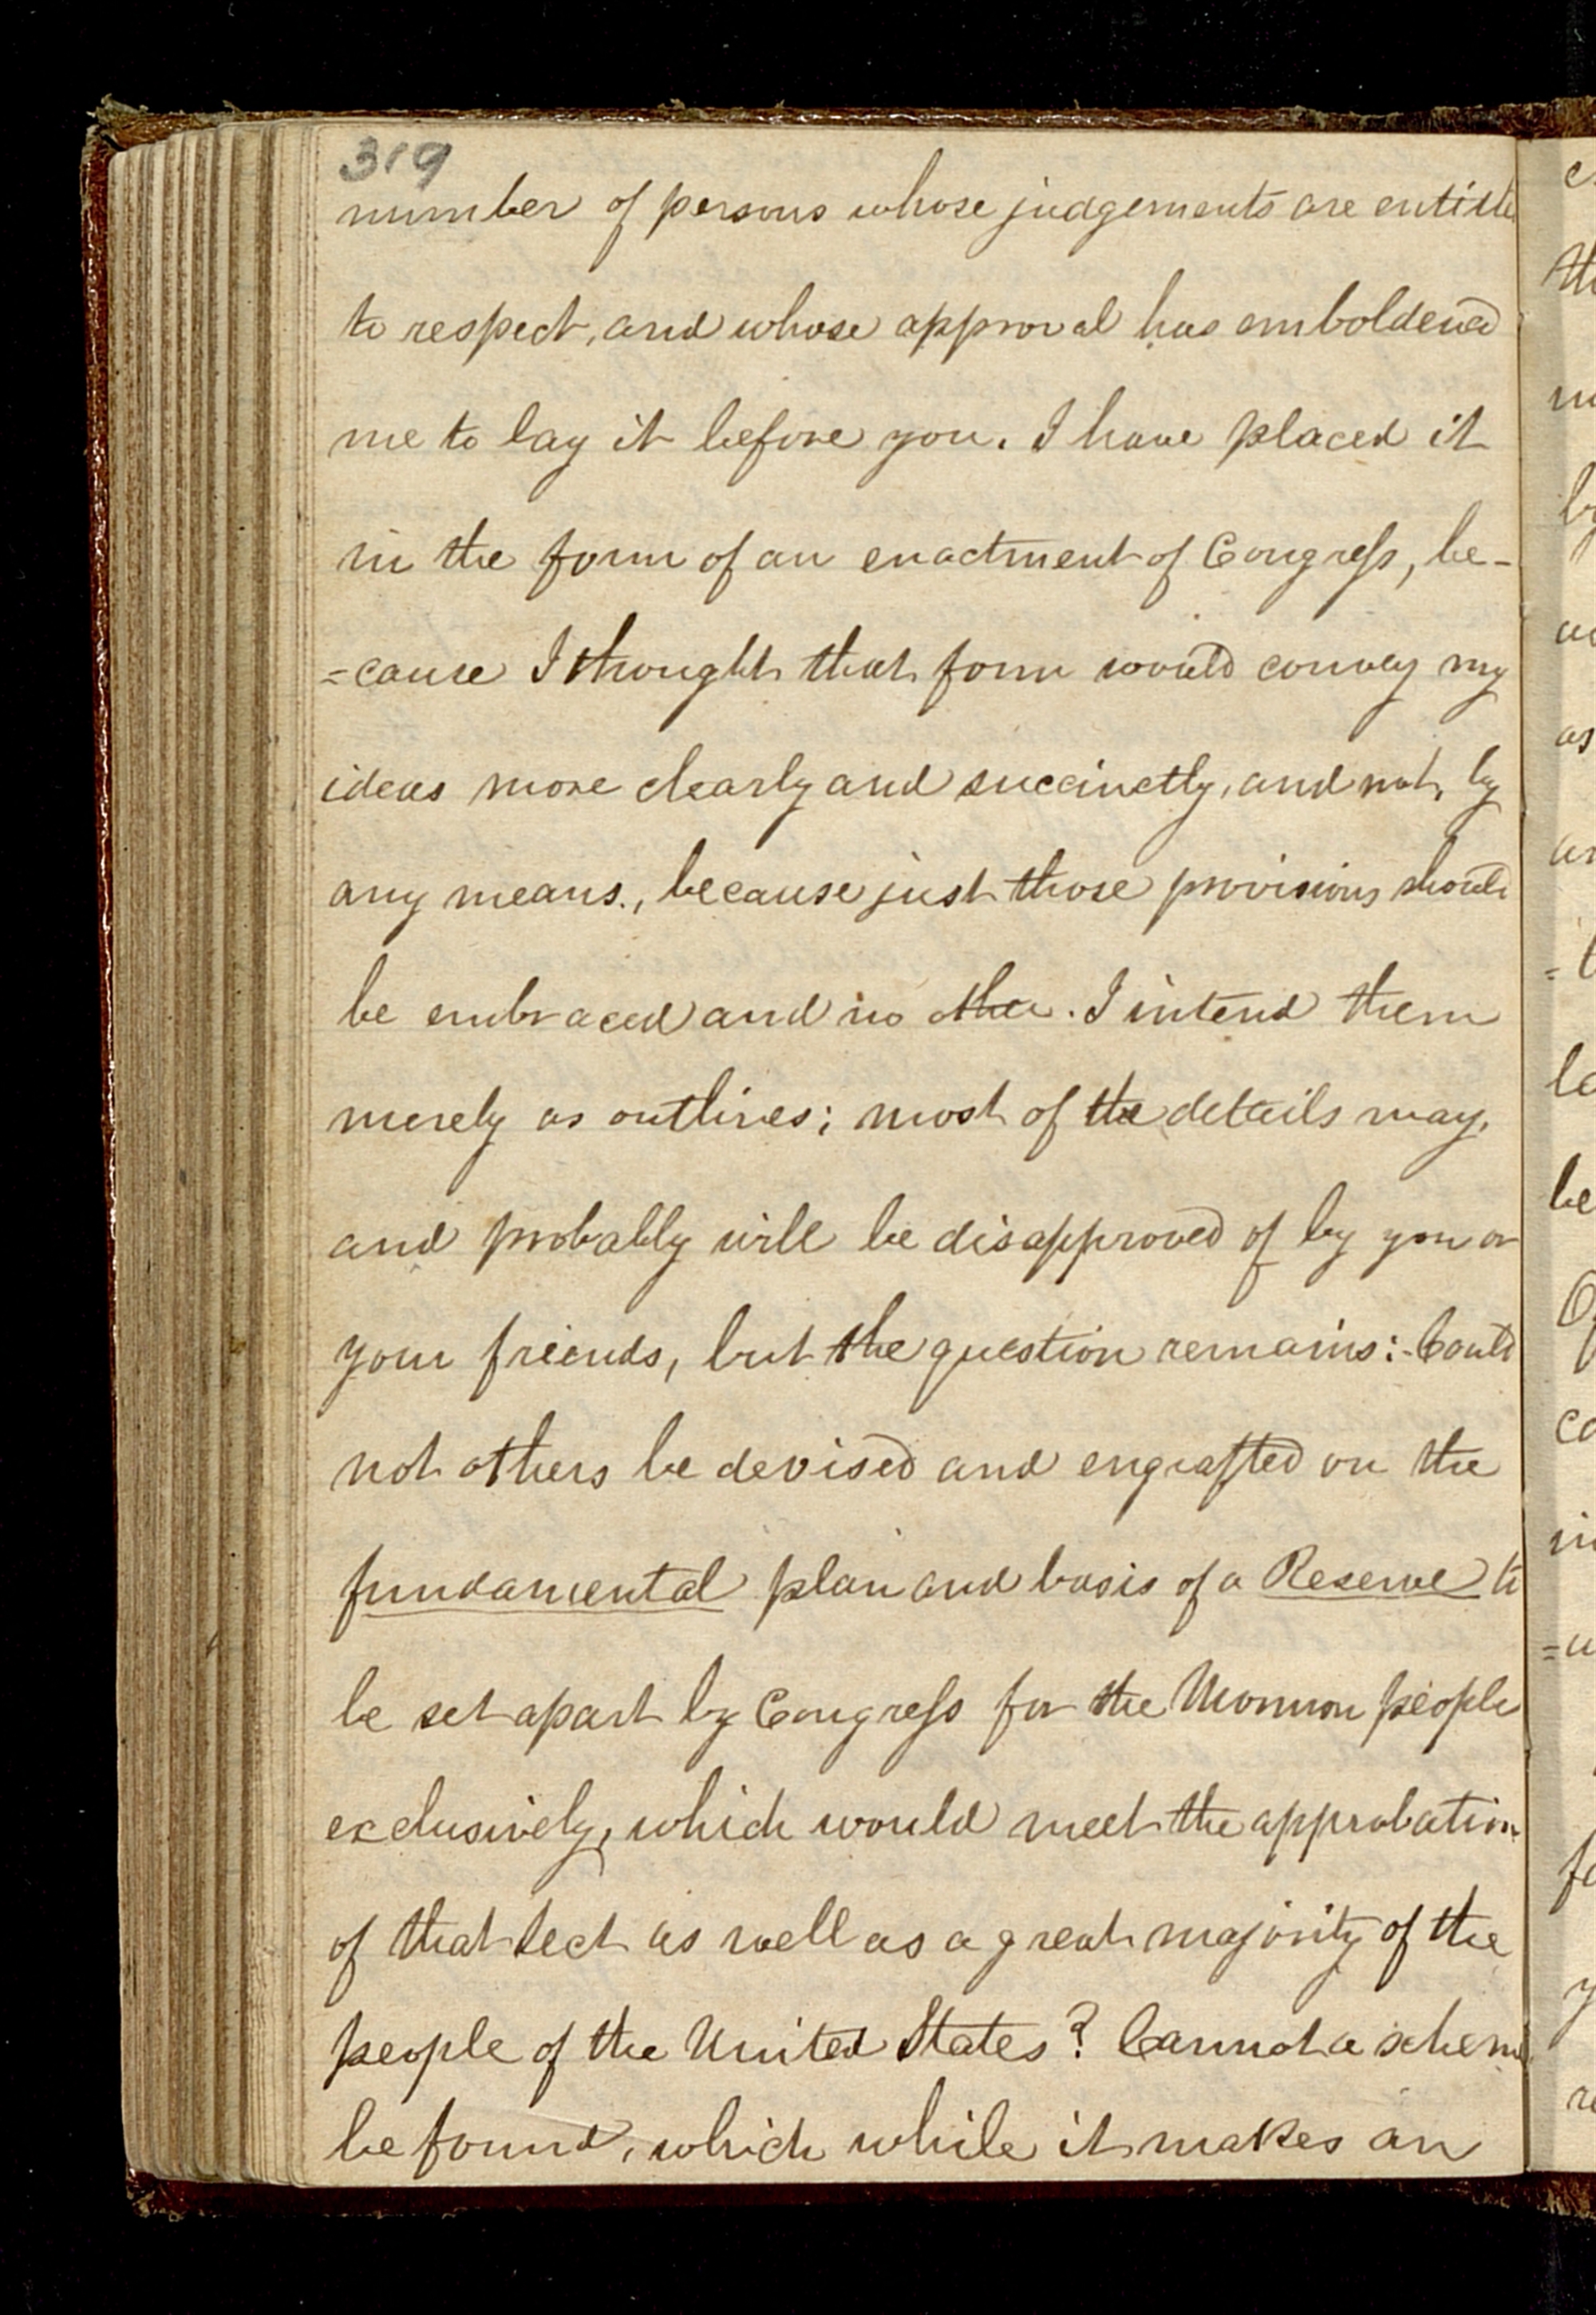 319
number of persons whose judgements are entitle
to respect, and whose approval has emboldened
me to lay it before you. I have placed it
in the form of an enactment of Congress, be-
=cause I thought that form would convey my
ideas more clearly and succinctly, and not, by
any means., because just those provisions should
be embraced and no other. I intend them
merely as outlines; most of the details may,
and probably will be disapproved of by you or
your friends, but the question remains:- Could
not others be devised and engrafted on the
fundamental plan and basis of a Reserve to
be set apart by Congress for the Mormon people
exclusively, which would meet the approbation
of that sect as well as a great majority of the
people of the United States? Cannot a scheme
be found, which while it makes an